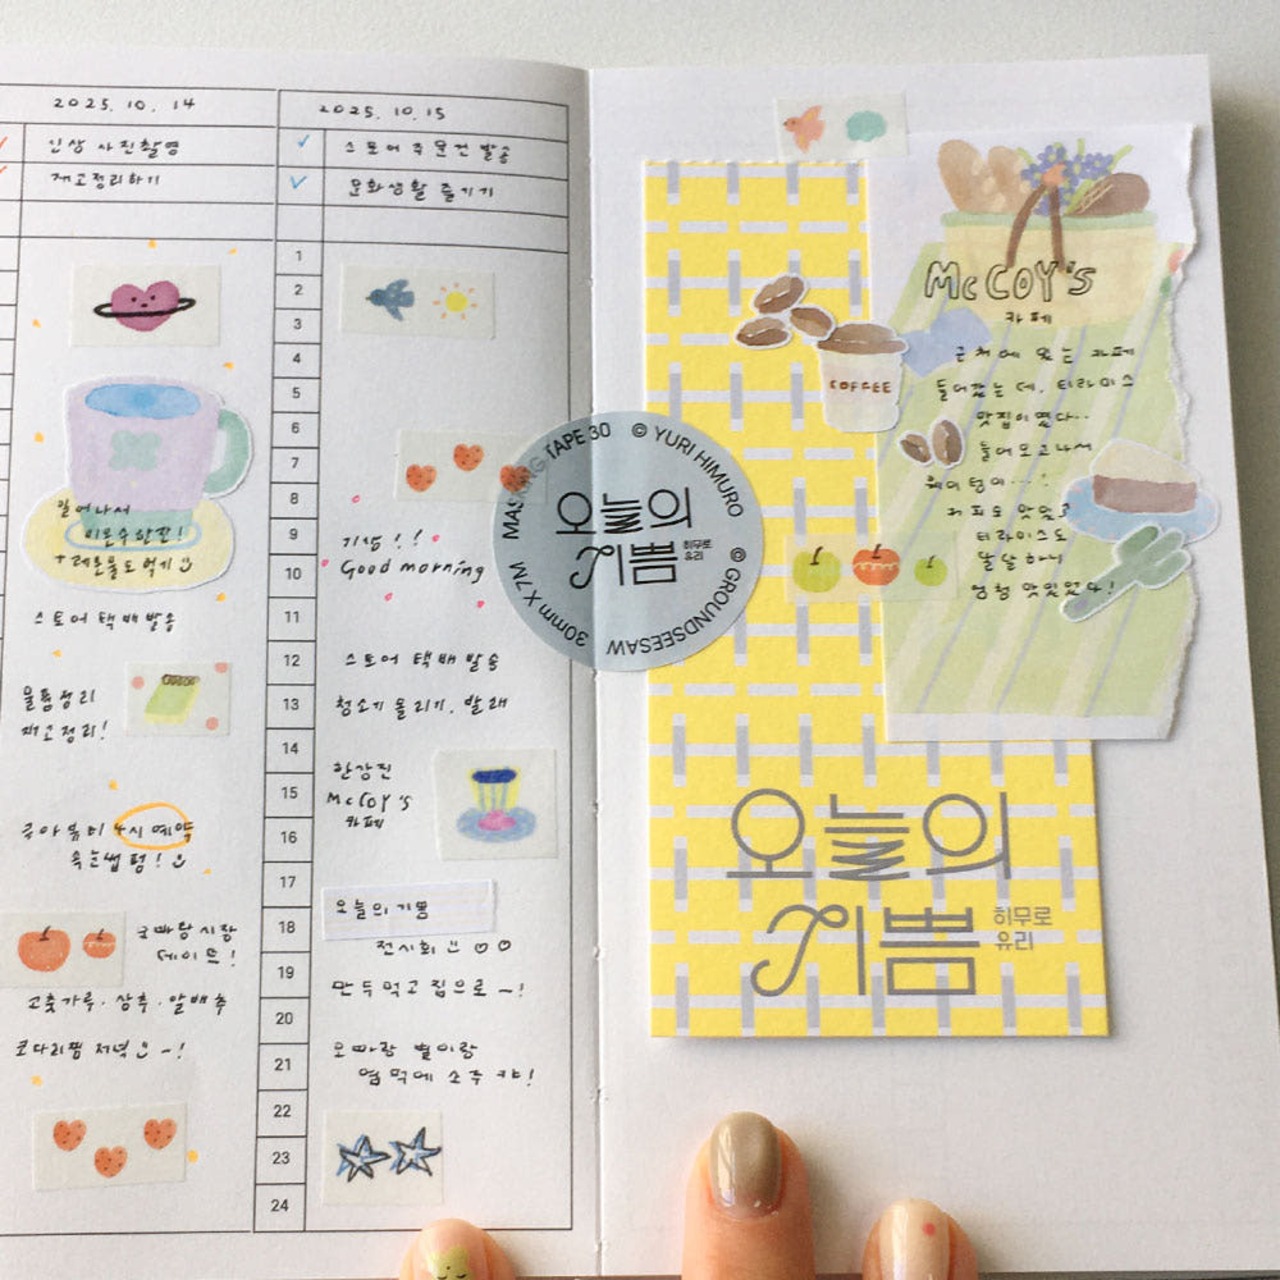 2025. 10. 14
인상 사진촬영
재고정리하기
일어나서
미온수한잔!
+레몬물도 먹기
스토어 택배발송
물품정리
재고정리!
4시 예약
속눈썹 펌!
오빠랑 시장
데이트!
고춧가루. 상추. 알배추
코다리찜 저녁 ~!
2025. 10. 15
스토어 주문건 발송
문화생활 즐기기
1
2
3
4
5
6
7
8
9
10
11
12
13
14
15
16
17
18
19
20
21
22
23
24
기상!!
Good morning
스토어 택배발송
청소기 돌리기. 빨래
한강진
McCoy's
카페
오늘의 기쁨
전시회
만두먹고 집으로 ~!
오빠랑 별이랑
엽떡에 소주 캬!
MASKING TAPE 30 © YURI HIMURO
© GROUNDSEESAW
30mm X 7M
오늘의
기쁨
히무로
유리
McCOY's
카페
근처에 있는 카페
들어갔는데, 티라미스
맛집이였다..
들어오고나서
웨이팅이...!
커피도 맛있고
티라미스도
달달하니
엄청 맛있었다!
COFFEE
오늘의
기쁨
히무로
유리